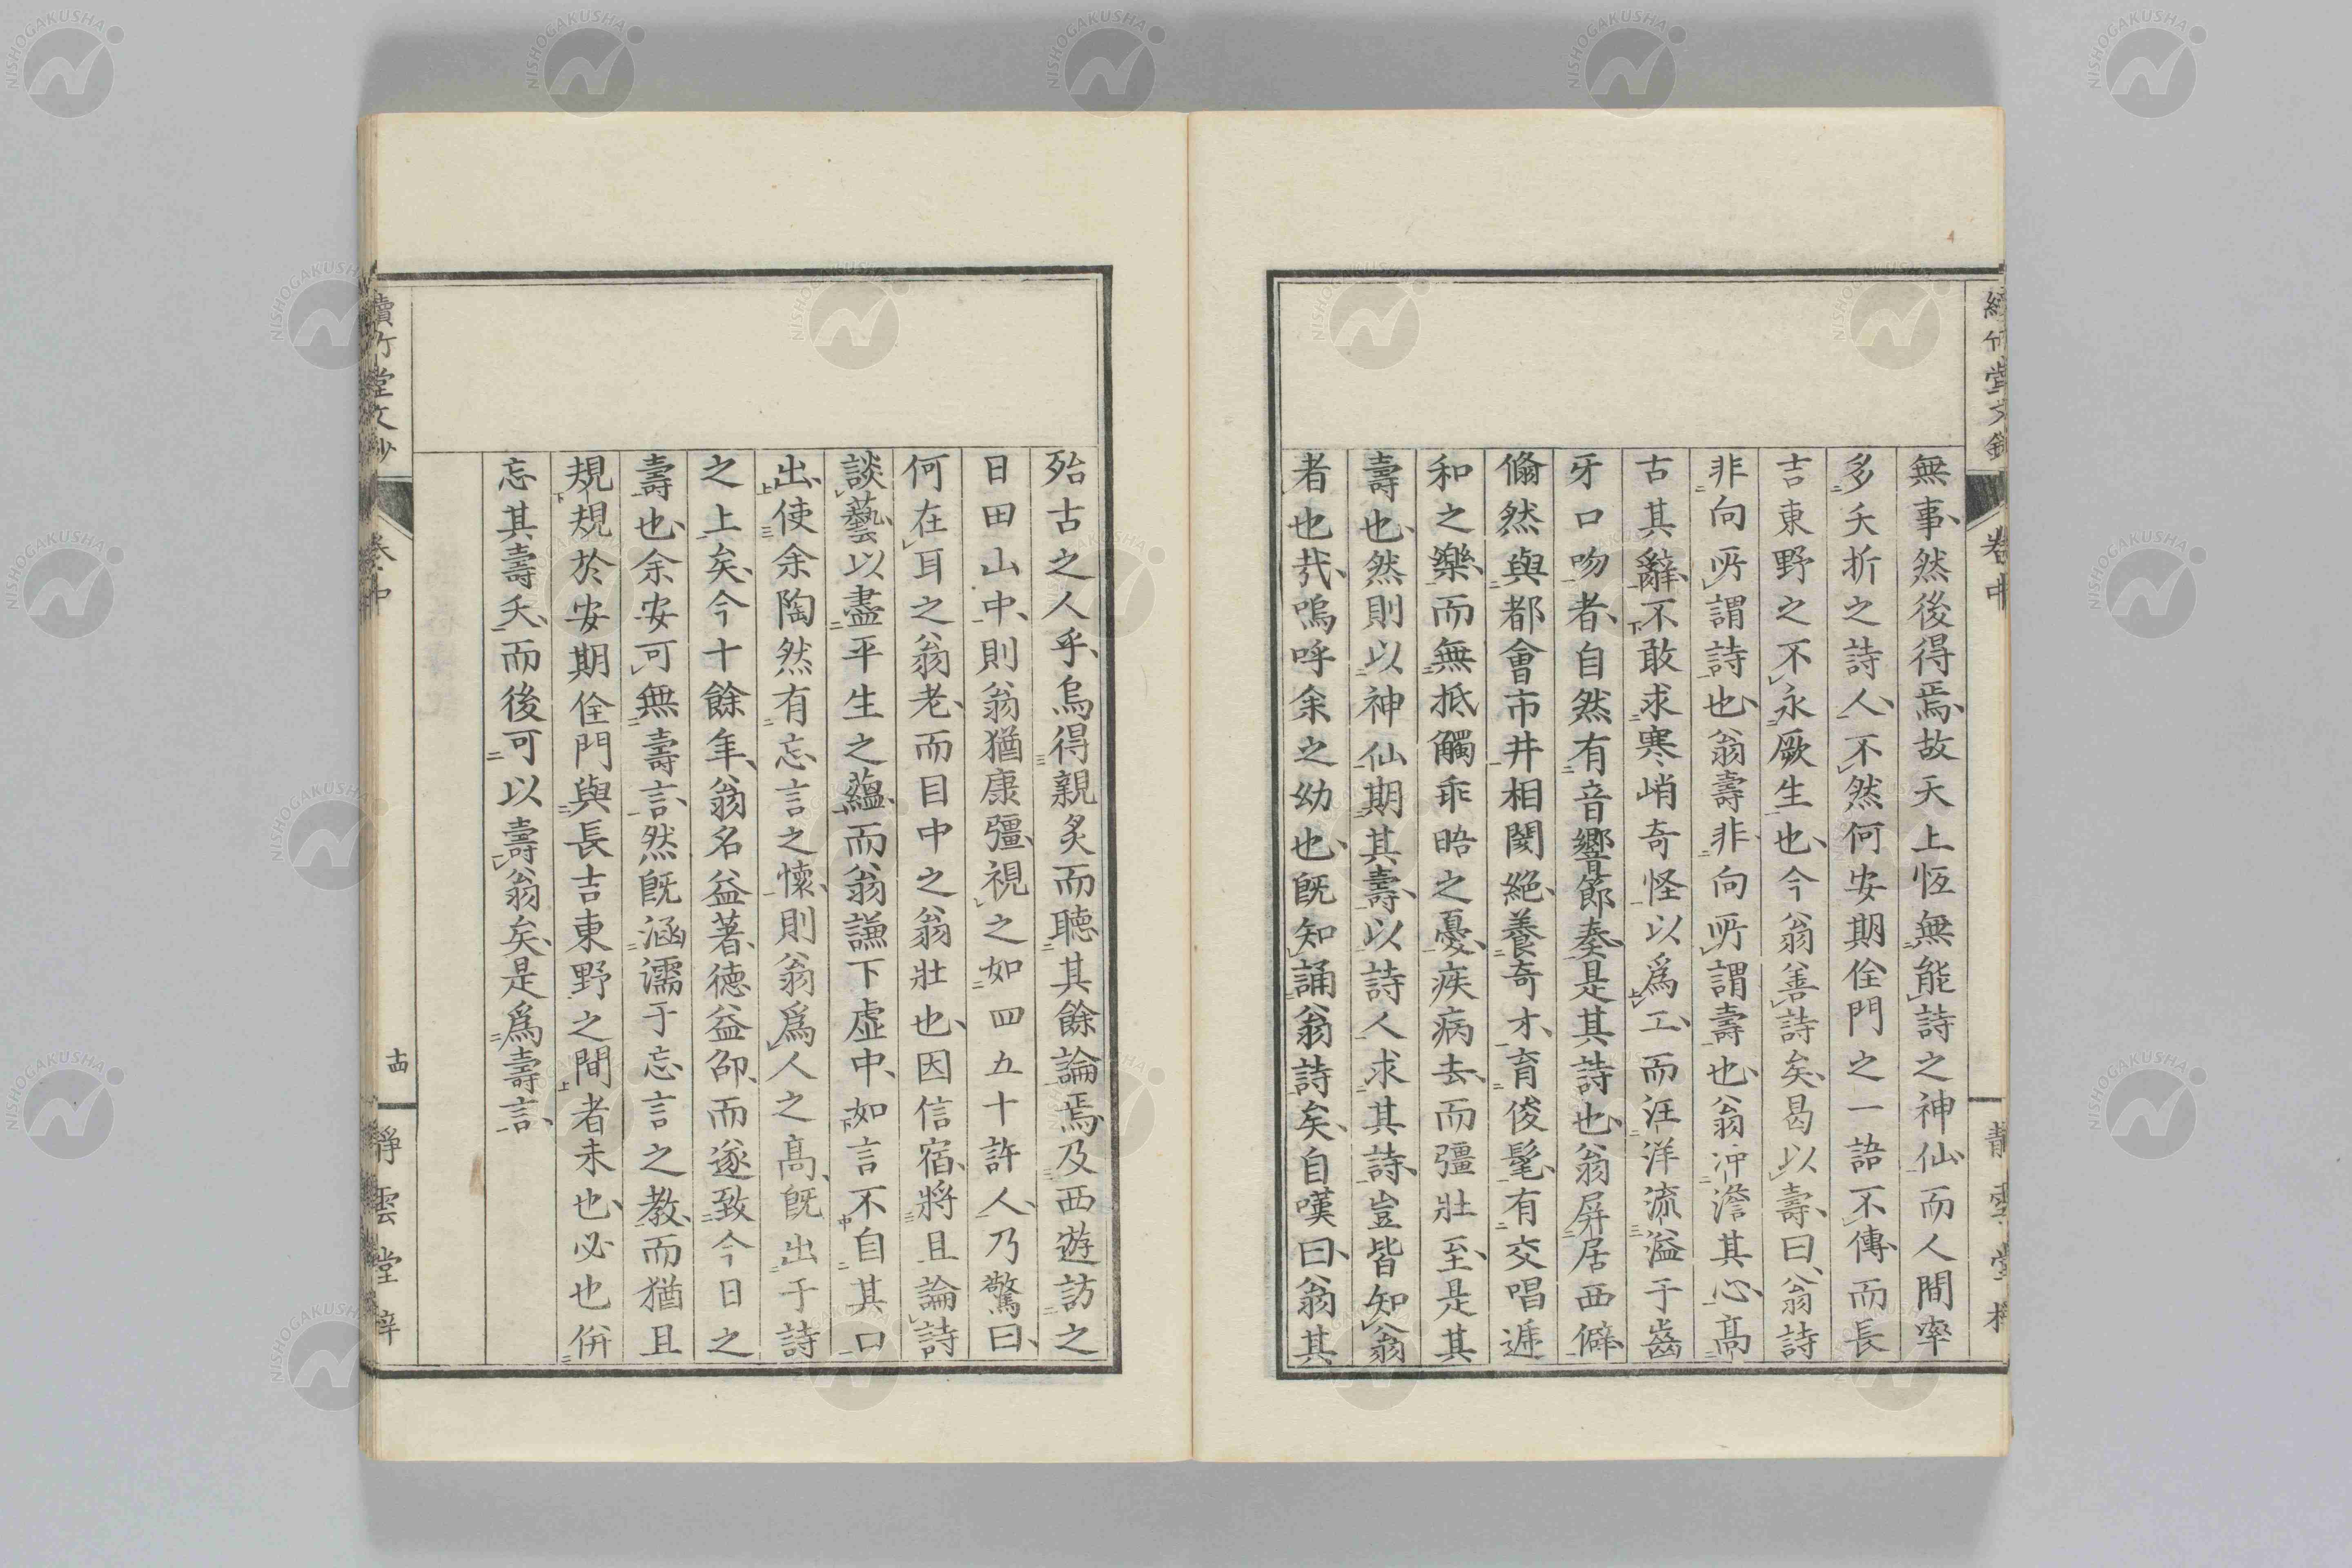 無事、然後得焉、故天上恆無能詩之神仙、而人間率
多夭折之詩人、不然何安期佺門之一語不傳、而長
吉東野之不永厥生也、今翁善詩矣、曷以壽、曰、翁詩
非向所謂詩也、翁壽非向所謂壽也、翁冲澹其心、高
古其辭、不敢求寒峭奇怪以爲工、而汪洋流溢于齒
牙口吻者、自然有音響節奏、是其詩也、翁屏居西僻、
翛然與都會市井相闋絶、養奇才、育俊髦、有交唱遞
和之樂、而無抵觸乖晤之憂、疾病去、而彊壯至、是其
壽也、然則以神仙期其壽、以詩人求其詩、豈皆知翁
者也哉、嗚呼余之幼也、既知誦翁詩矣、自嘆曰、翁其
殆古之人乎、烏得親炙而聽其餘論焉、及西遊訪之
日田山中、則翁猶康彊、視之如四五十許人、乃驚曰、
何在耳之翁老、而目中之翁壯也、因信宿、將且論詩
談藝以盡平生之蘊、而翁謙下虛中、如言不自其口
出、使余陶然有忘言之懷、則翁爲人之高、既出于詩
之上矣、今十餘年、翁名益著、德益卲、而遂致今日之
壽也、余安可無壽言、然既涵濡于忘言之教、而猶且
規規於安期佺門與長吉東野之間者未也、必也併
忘其壽夭、而後可以壽翁矣、是爲壽言、
竹堂文鈔
卷中
靜雲堂梓